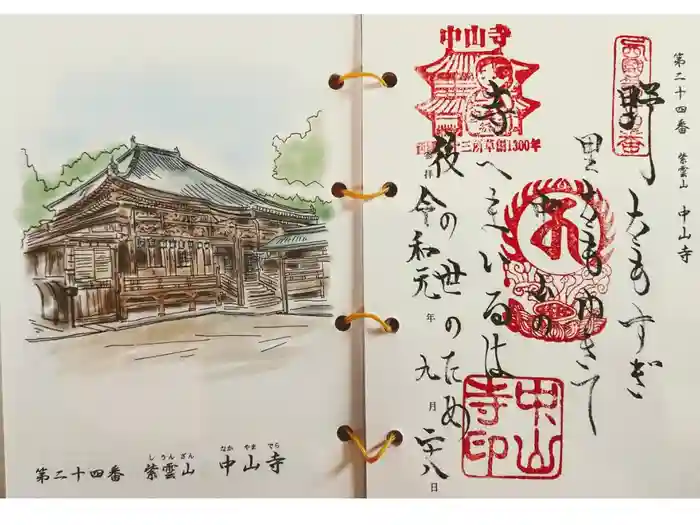 第二十四番 紫雲山 中山寺
しうんざん なかやまでら
第二十四番 紫雲山 中山寺
野をもすぎ
里をもゆきて
中山の
寺へまいるは
後の世のため
奉拝 令和元年 九月 二十八日
中山寺
三所草創1300年
中山寺印